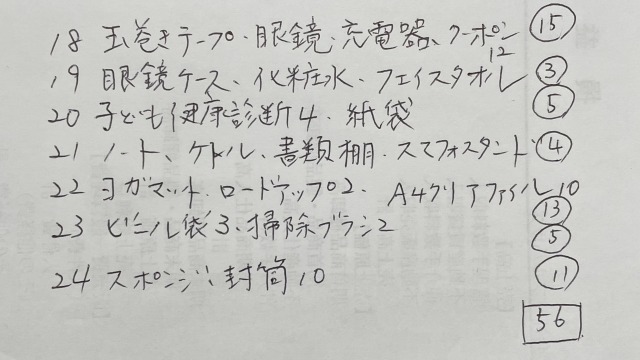 18 玉巻きテープ・眼鏡・充電器、クーポン12 ⑮
19 眼鏡ケース、化粧水・フェイスタオル ③
20 子ども健康診断4・紙袋 ⑤
21 ノート、ケトル、書類棚・スマフォスタンド ④
22 ヨガマット・ロードアップ2・A4クリアファイル10 ⑬
23 ビニル袋3・掃除ブラシ2 ⑤
24 スポンジ、封筒10 ⑪
56